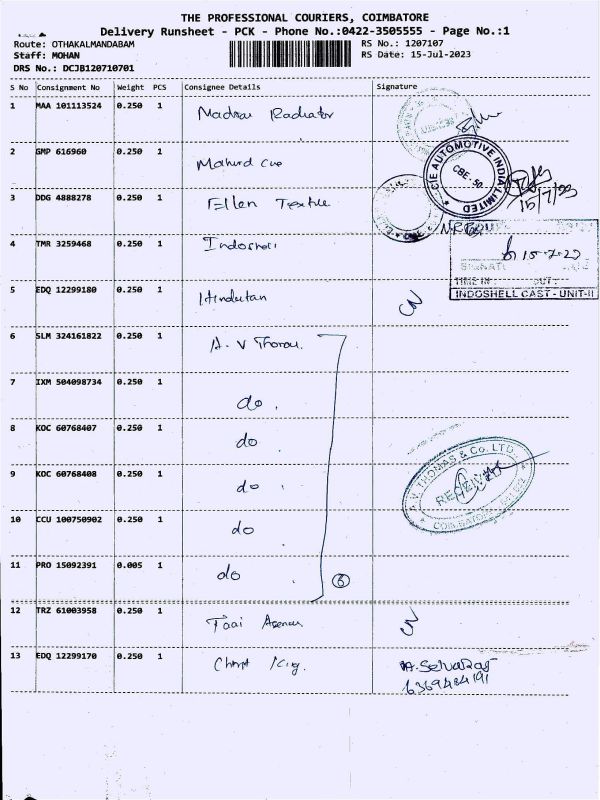 THE PROFESSIONAL COURIERS, COIMBATORE
Delivery Runsheet - PCK - Phone No.:0422-3505555 - Page No.:1
Route: OTHAKALMANDABAM
RS No.: 1207107
Staff: MOHAN
RS Date: 15-Jul-2023
DRS No.: DCJB120710701
S No Consignment No Weight PCS Consignee Details Signature
1 MAA 101113524 0.250 1 Madras Radiator
2 GMP 616960 0.250 1
CIE AUTOMOTIVE INDIA LIMITED
CBE - 50
15/7/23
3 DDG 4888278 0.250 1 Ellen Textile
4 TMR 3259468 0.250 1 Indoshell
15-7-23
TIME IN: OUT:
INDOSHELL CAST - UNIT-II
5 EDQ 12299180 0.250 1 Hindustan
6 SLM 324161822 0.250 1 A. V Thomas.
7 IXM 504098734 0.250 1 do .
8 KOC 60768407 0.250 1 do .
9 KOC 60768408 0.250 1 do .
A.V. THOMAS & Co. LTD.
RECEIVED
10 CCU 100750902 0.250 1 do .
11 PRO 15092391 0.005 1 do .
6
12 TRZ 61003958 0.250 1 Taai
13 EDQ 12299170 0.250 1
A. Selvaraj
6369484191